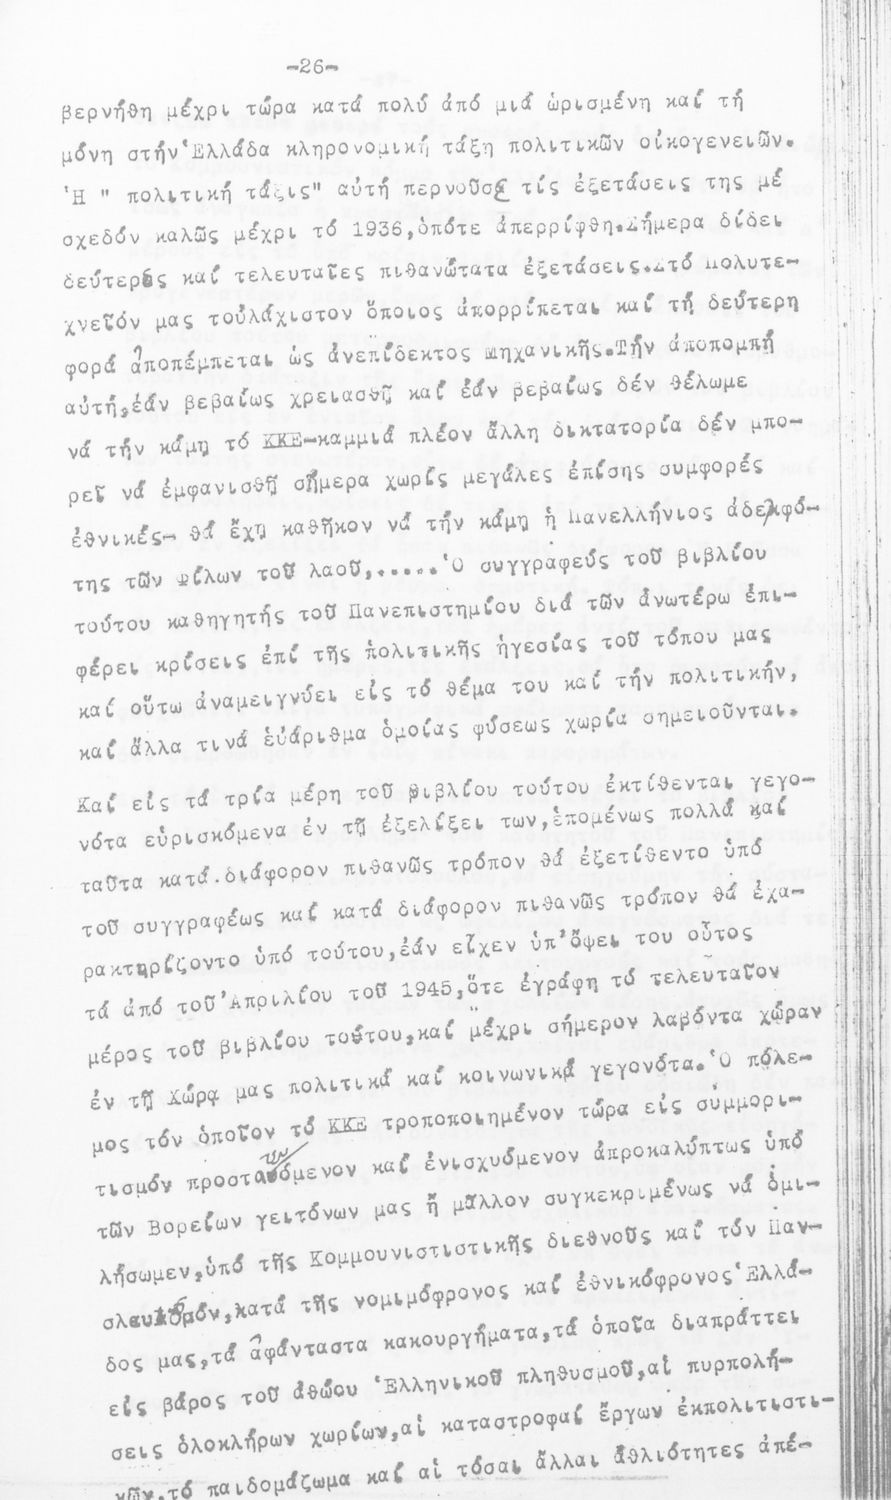 -26-
βερνήθη μέχρι τώρα κατά πολύ ἀπό μιά ὡρισμένη καί τή
μόνη στήν Ἑλλάδα κληρονομική τάξη πολιτικῶν οἰκογενειῶν.
Ἡ " πολιτική τάξις" αὐτή περνοῦσε τίς ἐξετάσεις της μέ
σχεδόν καλῶς μέχρι τό 1936,ὁπότε ἀπερρίφθη.Σήμερα δίδει
δεύτερες καί τελευταῖες πιθανώτατα ἐξετάσεις.Στό Πολυτε-
χνεῖόν μας τοὐλάχιστον ὅποιος ἀπορρίπεται καί τή δεύτερη
φορά ἀποπέμπεται ὡς ἀνεπίδεκτος μηχανικῆς.Τήν ἀποπομπή
αὐτή,ἐάν βεβαίως χρειασθῇ καί ἐάν βεβαίως δέν θέλωμε
νά τήν κάμῃ τό ΚΚΕ-καμμιά πλέον ἄλλη δικτατορία δέν μπο-
ρεῖ νά ἐμφανισθῇ σήμερα χωρίς μεγάλες ἐπίσης συμφορές
ἐθνικές- θά ἔχῃ καθῆκον νά τήν κάμῃ ἡ Πανελλήνιος ἀδελφό-
της τῶν Φίλων τοῦ λαοῦ,......Ὁ συγγραφεύς τοῦ βιβλίου
τούτου καθηγητής τοῦ Πανεπιστημίου διά τῶν ἀνωτέρω ἐπι-
φέρει κρίσεις ἐπί τῆς πολιτικῆς ἡγεσίας τοῦ τόπου μας
καί οὕτω ἀναμειγνύει εἰς τό θέμα του καί τήν πολιτικήν,
καί ἄλλα τινά εὐάριθμα ὁμοίας φύσεως χωρία σημειοῦνται.
Καί εἰς τά τρία μέρη τοῦ βιβλίου τούτου ἐκτίθενται γεγο-
νότα εὑρισκόμενα ἐν τῇ ἐξελίξει των,ἑπομένως πολλά καί
ταῦτα κατά.διάφορον πιθανῶς τρόπον θά ἐξετίθεντο ὑπό
τοῦ συγγραφέως καί κατά διάφορον πιθανῶς τρόπον θά ἐχα-
ρακτηρίζοντο ὑπό τούτου,ἐάν εἶχεν ὑπ'ὄψει του οὗτος
τά ἀπό τοῦ Ἀπριλίου τοῦ 1945,ὅτε ἐγράφη τό τελευταῖον
μέρος τοῦ βιβλίου τούτου,καί μέχρι σήμερον λαβόντα χώραν
ἐν τῇ Χώρᾳ μας πολιτικά καί κοινωνικά γεγονότα.Ὁ πόλε-
μος τόν ὁποῖον τό ΚΚΕ τροποποιημένον τώρα εἰς συμμορι-
τισμόν καί ἐνισχυόμενον ἀπροκαλύπτως ὑπό
τῶν Βορείων γειτόνων μας ἤ μᾶλλον συγκεκριμένως νά ὁμι-
λήσωμεν,ὑπό τῆς Κομμουνιστιστικῆς διεθνοῦς καί τόν Παν-
σλαυϊσμόν,κατά τῆς νομιμόφρονος καί ἐθνικόφρονος Ἑλλά-
δος μας,τά ἀφάνταστα κακουργήματα,τά ὁποῖα διαπράττει
εἰς βάρος τοῦ ἀθώου Ἑλληνικοῦ πληθυσμοῦ,αἱ πυρπολή-
σεις ὁλοκλήρων χωρίων,αἱ καταστροφαί ἔργων ἐκπολιτιστι-
κῶν,τό παιδομάζωμα καί αἱ τόσαι ἄλλαι ἀθλιότητες ἀπέ-